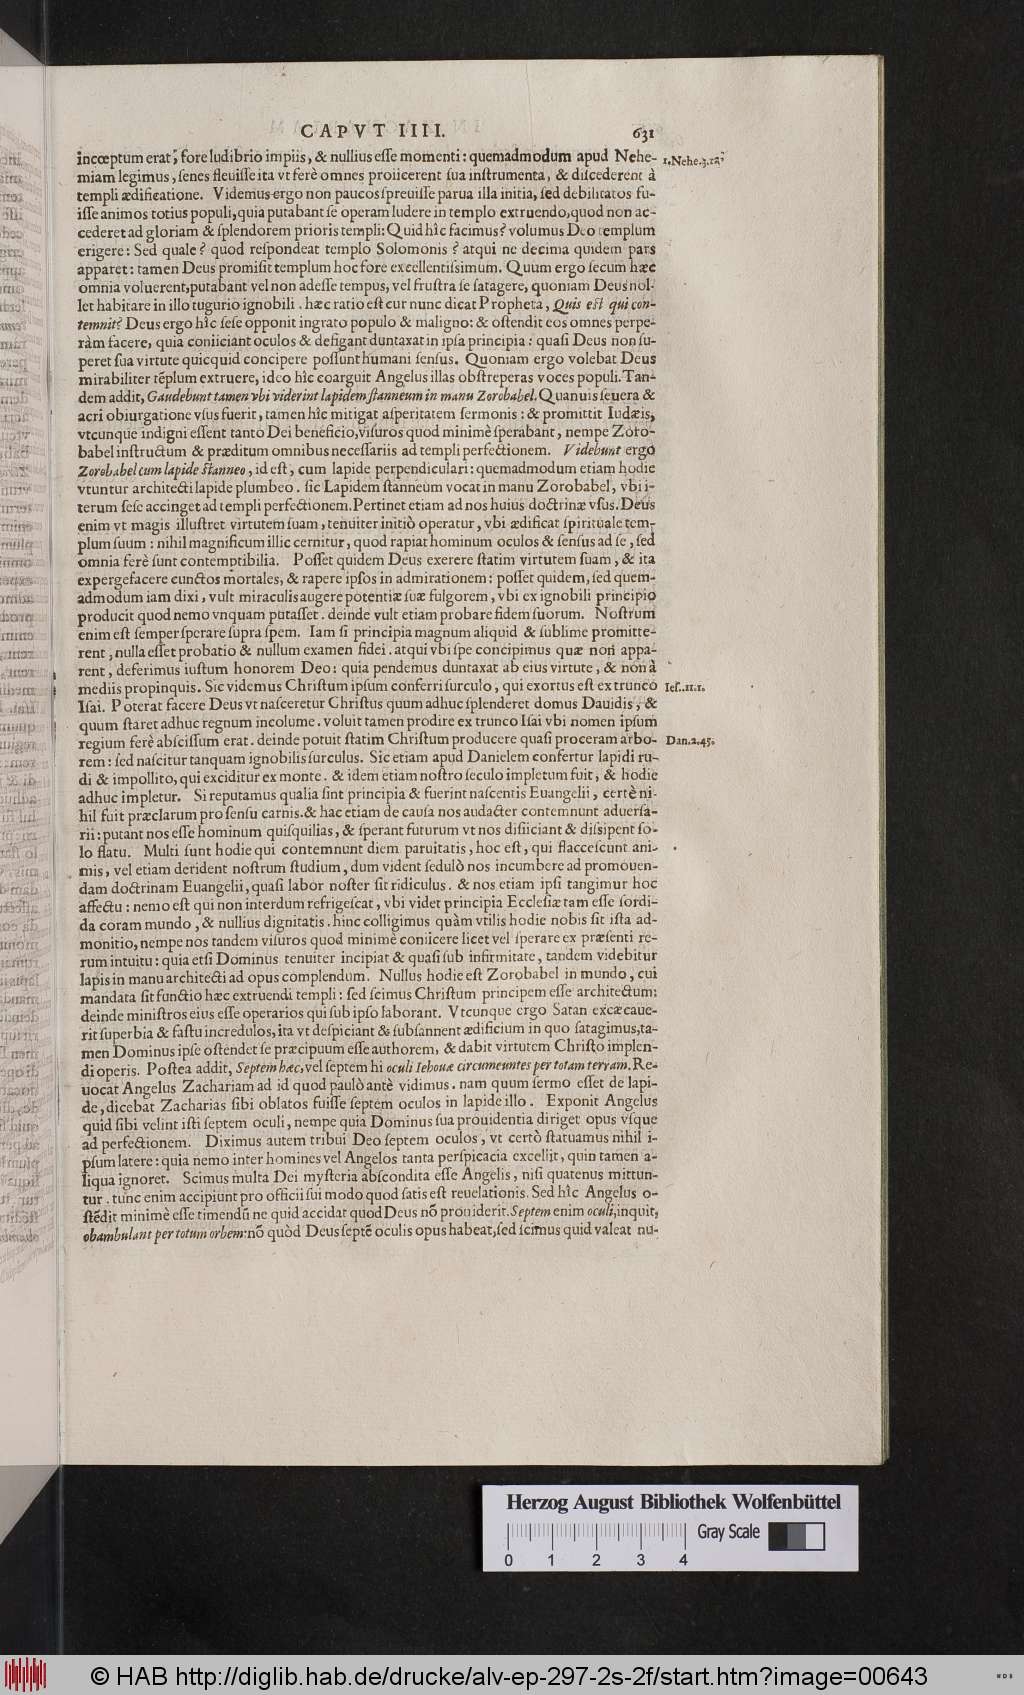 CAPVT IIII. 631
incœptum erat, fore ludibrio impiis, & nullius esse momenti: quemadmodum apud Nehe- 1. Nehe. 3. 12.
miam legimus, senes fleuisse ita vt ferè omnes proiicerent sua instrumenta, & discederent à
templi ædificatione. Videmus ergo non paucos spreuisse parua illa initia, sed debilitatos fu-
isse animos totius populi, quia putabant se operam ludere in templo extruendo, quod non ac-
cederet ad gloriam & splendorem prioris templi: Quid hîc facimus? volumus Deo templum
erigere: Sed quale? quod respondeat templo Solomonis? atqui ne decima quidem pars
apparet: tamen Deus promisit templum hoc fore excellentissimum. Quum ergo secum hæc
omnia voluerent, putabant vel non adesse tempus, vel frustra se satagere, quoniam Deus nol-
let habitare in illo tugurio ignobili. hæc ratio est cur nunc dicat Propheta, Quis est qui con-
temnit? Deus ergo hîc sese opponit ingrato populo & maligno: & ostendit eos omnes perpe-
ràm facere, quia coniiciant oculos & defigant duntaxat in ipsa principia: quasi Deus non su-
peret sua virtute quicquid concipere possunt humani sensus. Quoniam ergo volebat Deus
mirabiliter tēplum extruere, ideo hîc coarguit Angelus illas obstreperas voces populi. Tan-
dem addit, Gaudebunt tamen vbi viderint lapidem stanneum in manu Zorobabel. Quanuis seuera &
acri obiurgatione vsus fuerit, tamen hîc mitigat asperitatem sermonis: & promittit Iudæis,
vtcunque indigni essent tanto Dei beneficio, visuros quod minimè sperabant, nempe Zoro-
babel instructum & præditum omnibus necessariis ad templi perfectionem. Videbunt ergo
Zorobabel cum lapide stanneo, id est, cum lapide perpendiculari: quemadmodum etiam hodie
vtuntur architecti lapide plumbeo. sic Lapidem stanneum vocat in manu Zorobabel, vbi i-
terum sese accinget ad templi perfectionem. Pertinet etiam ad nos huius doctrinæ vsus. Deus
enim vt magis illustret virtutem suam, tenuiter initiò operatur, vbi ædificat spirituale tem-
plum suum: nihil magnificum illic cernitur, quod rapiat hominum oculos & sensus ad se, sed
omnia ferè sunt contemptibilia. Posset quidem Deus exerere statim virtutem suam, & ita
expergefacere cunctos mortales, & rapere ipsos in admirationem: posset quidem, sed quem-
admodum iam dixi, vult miraculis augere potentiæ suæ fulgorem, vbi ex ignobili principio
producit quod nemo vnquam putasset. deinde vult etiam probare fidem suorum. Nostrum
enim est semper sperare supra spem. Iam si principia magnum aliquid & sublime promitte-
rent, nulla esset probatio & nullum examen fidei. atqui vbi spe concipimus quæ non appa-
rent, deferimus iustum honorem Deo: quia pendemus duntaxat ab eius virtute, & non à
mediis propinquis. Sic videmus Christum ipsum conferri surculo, qui exortus est ex trunco Ies. 11. 1.
Isai. Poterat facere Deus vt nasceretur Christus quum adhuc splenderet domus Dauidis, &
quum staret adhuc regnum incolume. voluit tamen prodire ex trunco Isai vbi nomen ipsum
regium ferè abscissum erat. deinde potuit statim Christum producere quasi proceram arbo- Dan. 2. 45.
rem: sed nascitur tanquam ignobilis surculus. Sic etiam apud Danielem confertur lapidi ru-
di & impollito, qui exciditur ex monte. & idem etiam nostro seculo impletum fuit, & hodie
adhuc impletur. Si reputamus qualia sint principia & fuerint nascentis Euangelii, certè ni-
hil fuit præclarum pro sensu carnis. & hac etiam de causa nos audacter contemnunt aduersa-
rii: putant nos esse hominum quisquilias, & sperant futurum vt nos disiiciant & dissipent so-
lo flatu. Multi sunt hodie qui contemnunt diem paruitatis, hoc est, qui flaccescunt ani-
mis, vel etiam derident nostrum studium, dum vident sedulò nos incumbere ad promouen-
dam doctrinam Euangelii, quasi labor noster sit ridiculus. & nos etiam ipsi tangimur hoc
affectu: nemo est qui non interdum refrigescat, vbi videt principia Ecclesiæ tam esse sordi-
da coram mundo, & nullius dignitatis. hinc colligimus quàm vtilis hodie nobis sit ista ad-
monitio, nempe nos tandem visuros quod minimè coniicere licet vel sperare ex præsenti re-
rum intuitu: quia etsi Dominus tenuiter incipiat & quasi sub infirmitate, tandem videbitur
lapis in manu architecti ad opus complendum. Nullus hodie est Zorobabel in mundo, cui
mandata sit functio hæc extruendi templi: sed scimus Christum principem esse architectum:
deinde ministros eius esse operarios qui sub ipso laborant. Vtcunque ergo Satan excæcaue-
rit superbia & fastu incredulos, ita vt despiciant & subsannent ædificium in quo satagimus, ta-
men Dominus ipse ostendet se præcipuum esse authorem, & dabit virtutem Christo implen-
di operis. Postea addit, Septem hæc, vel septem hi oculi Iehouæ circumeuntes per totam terram. Re-
uocat Angelus Zachariam ad id quod paulò antè vidimus. nam quum sermo esset de lapi-
de, dicebat Zacharias sibi oblatos fuisse septem oculos in lapide illo. Exponit Angelus
quid sibi velint isti septem oculi, nempe quia Dominus sua prouidentia diriget opus vsque
ad perfectionem. Diximus autem tribui Deo septem oculos, vt certò statuamus nihil i-
psum latere: quia nemo inter homines vel Angelos tanta perspicacia excellit, quin tamen a-
liqua ignoret. Scimus multa Dei mysteria abscondita esse Angelis, nisi quatenus mittun-
tur. tunc enim accipiunt pro officii sui modo quod satis est reuelationis. Sed hîc Angelus o-
stēdit minimè esse timendū ne quid accidat quod Deus nō prouiderit. Septem enim oculi, inquit,
obambulant per totum orbem: nō quòd Deus septē oculis opus habeat, sed scimus quid valeat nu-
Herzog August Bibliothek Wolfenbüttel
Gray Scale
0 1 2 3 4
© HAB http://diglib.hab.de/drucke/alv-ep-297-2s-2f/start.htm?image=00643
WDB